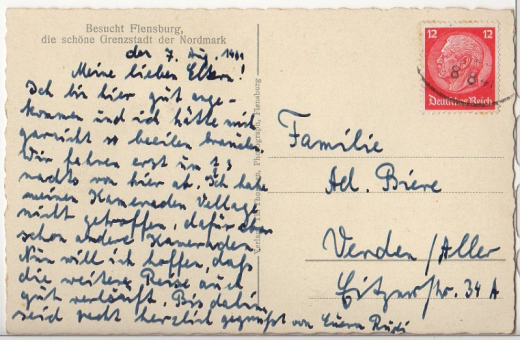 Besucht Flensburg,
die schöne Grenzstadt der Nordmark
den 7. Aug.
Meine lieben Eltern!
Ich bin hier gut ange-
kommen und ich hätte mich
garnicht so beeilen brauchen.
Wir fahren erst um 1
nachts von hier ab. Ich habe
meinen Kameraden
nicht getroffen, dafür aber
schon andere Kameraden.
Nun will ich hoffen, daß
die weitere Reise auch
gut verläuft. Bis dahin
seid recht herzlich gegrüßt von Euern Rudi
Photograph, Flensburg
12 12
Deutsches Reich
8. 8.
Familie
Ad. Biere
Verden / Aller
Eitzerstr. 34 A